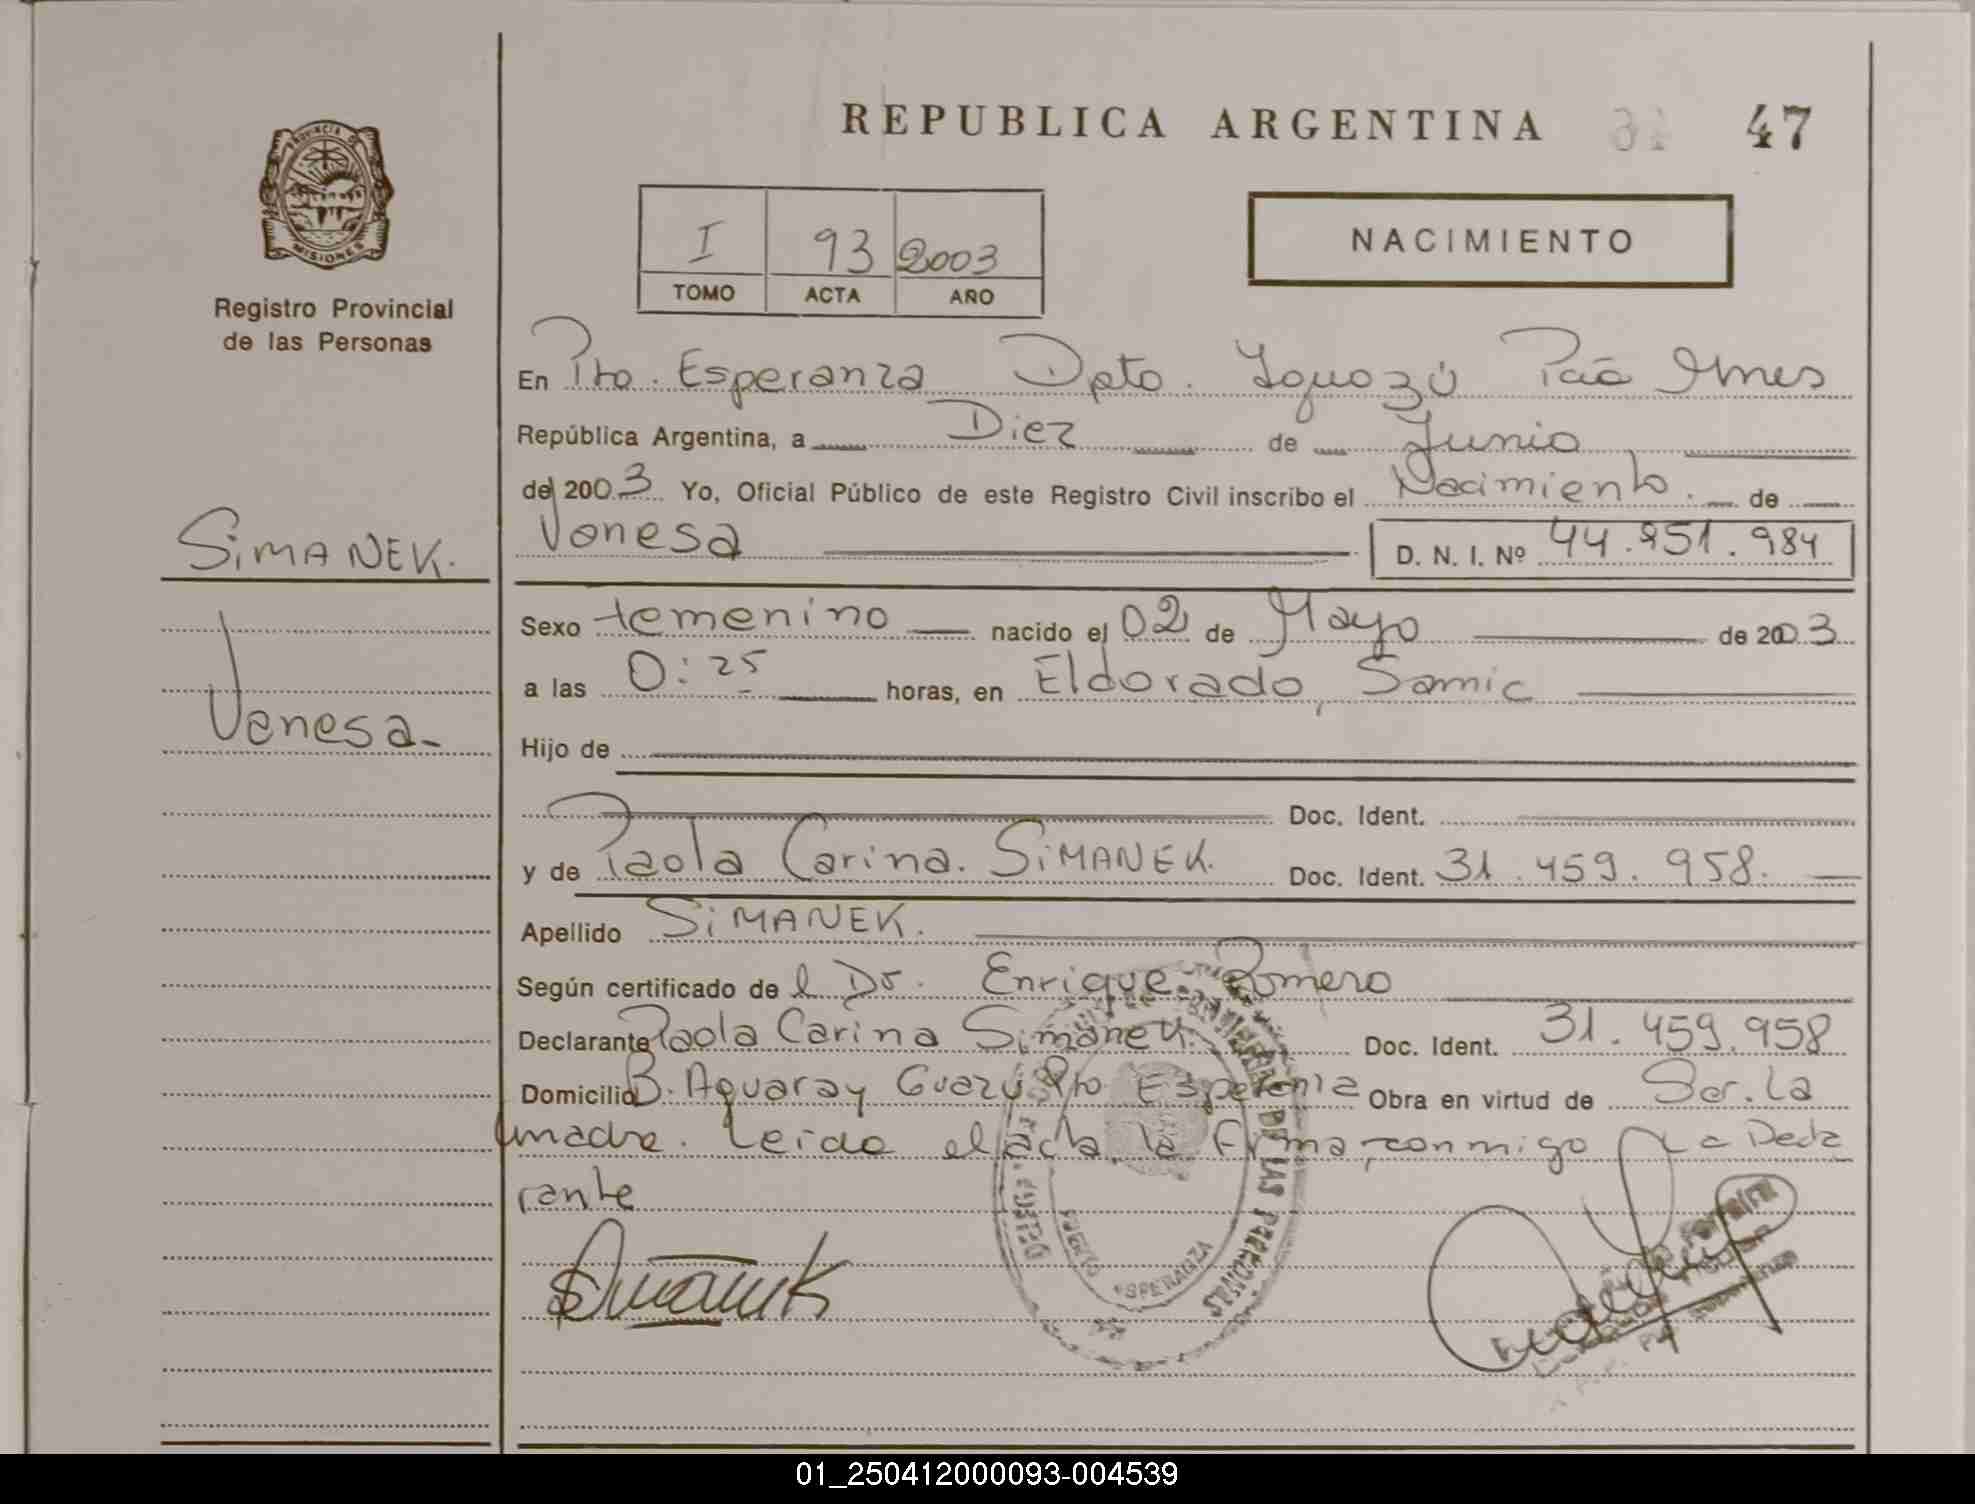 REPUBLICA ARGENTINA 47
PROVINCIA DE
MISIONES
Registro Provincial
de las Personas
I 93 2003
TOMO ACTA AÑO
NACIMIENTO
En Pto. Esperanza Dpto. Iguazú Pcia Mnes
República Argentina, a Diez de Junio
del 2003 Yo, Oficial Público de este Registro Civil inscribo el Nacimiento. de
Vanesa D. N. I. Nº 44.951.984
SiMANEK.
Vanesa
Sexo femenino nacido el 02 de Mayo de 2003
a las 0:25 horas, en Eldorado, Samic
Hijo de
Doc. Ident.
y de Paola Carina. SiMANEK. Doc. Ident. 31.459.958.
Apellido SiMANEK.
Según certificado de l Dr. Enrique Romero
Declarante Paola Carina Simanek. Doc. Ident. 31.459.958
Domicilio B. Aguaray Guazú Pto Esperanza Obra en virtud de Ser. la
madre. Leida el acta, la firma, conmigo La Decla
rante
DE LAS PERSONAS
PUERTO ESPERANZA
01_250412000093-004539